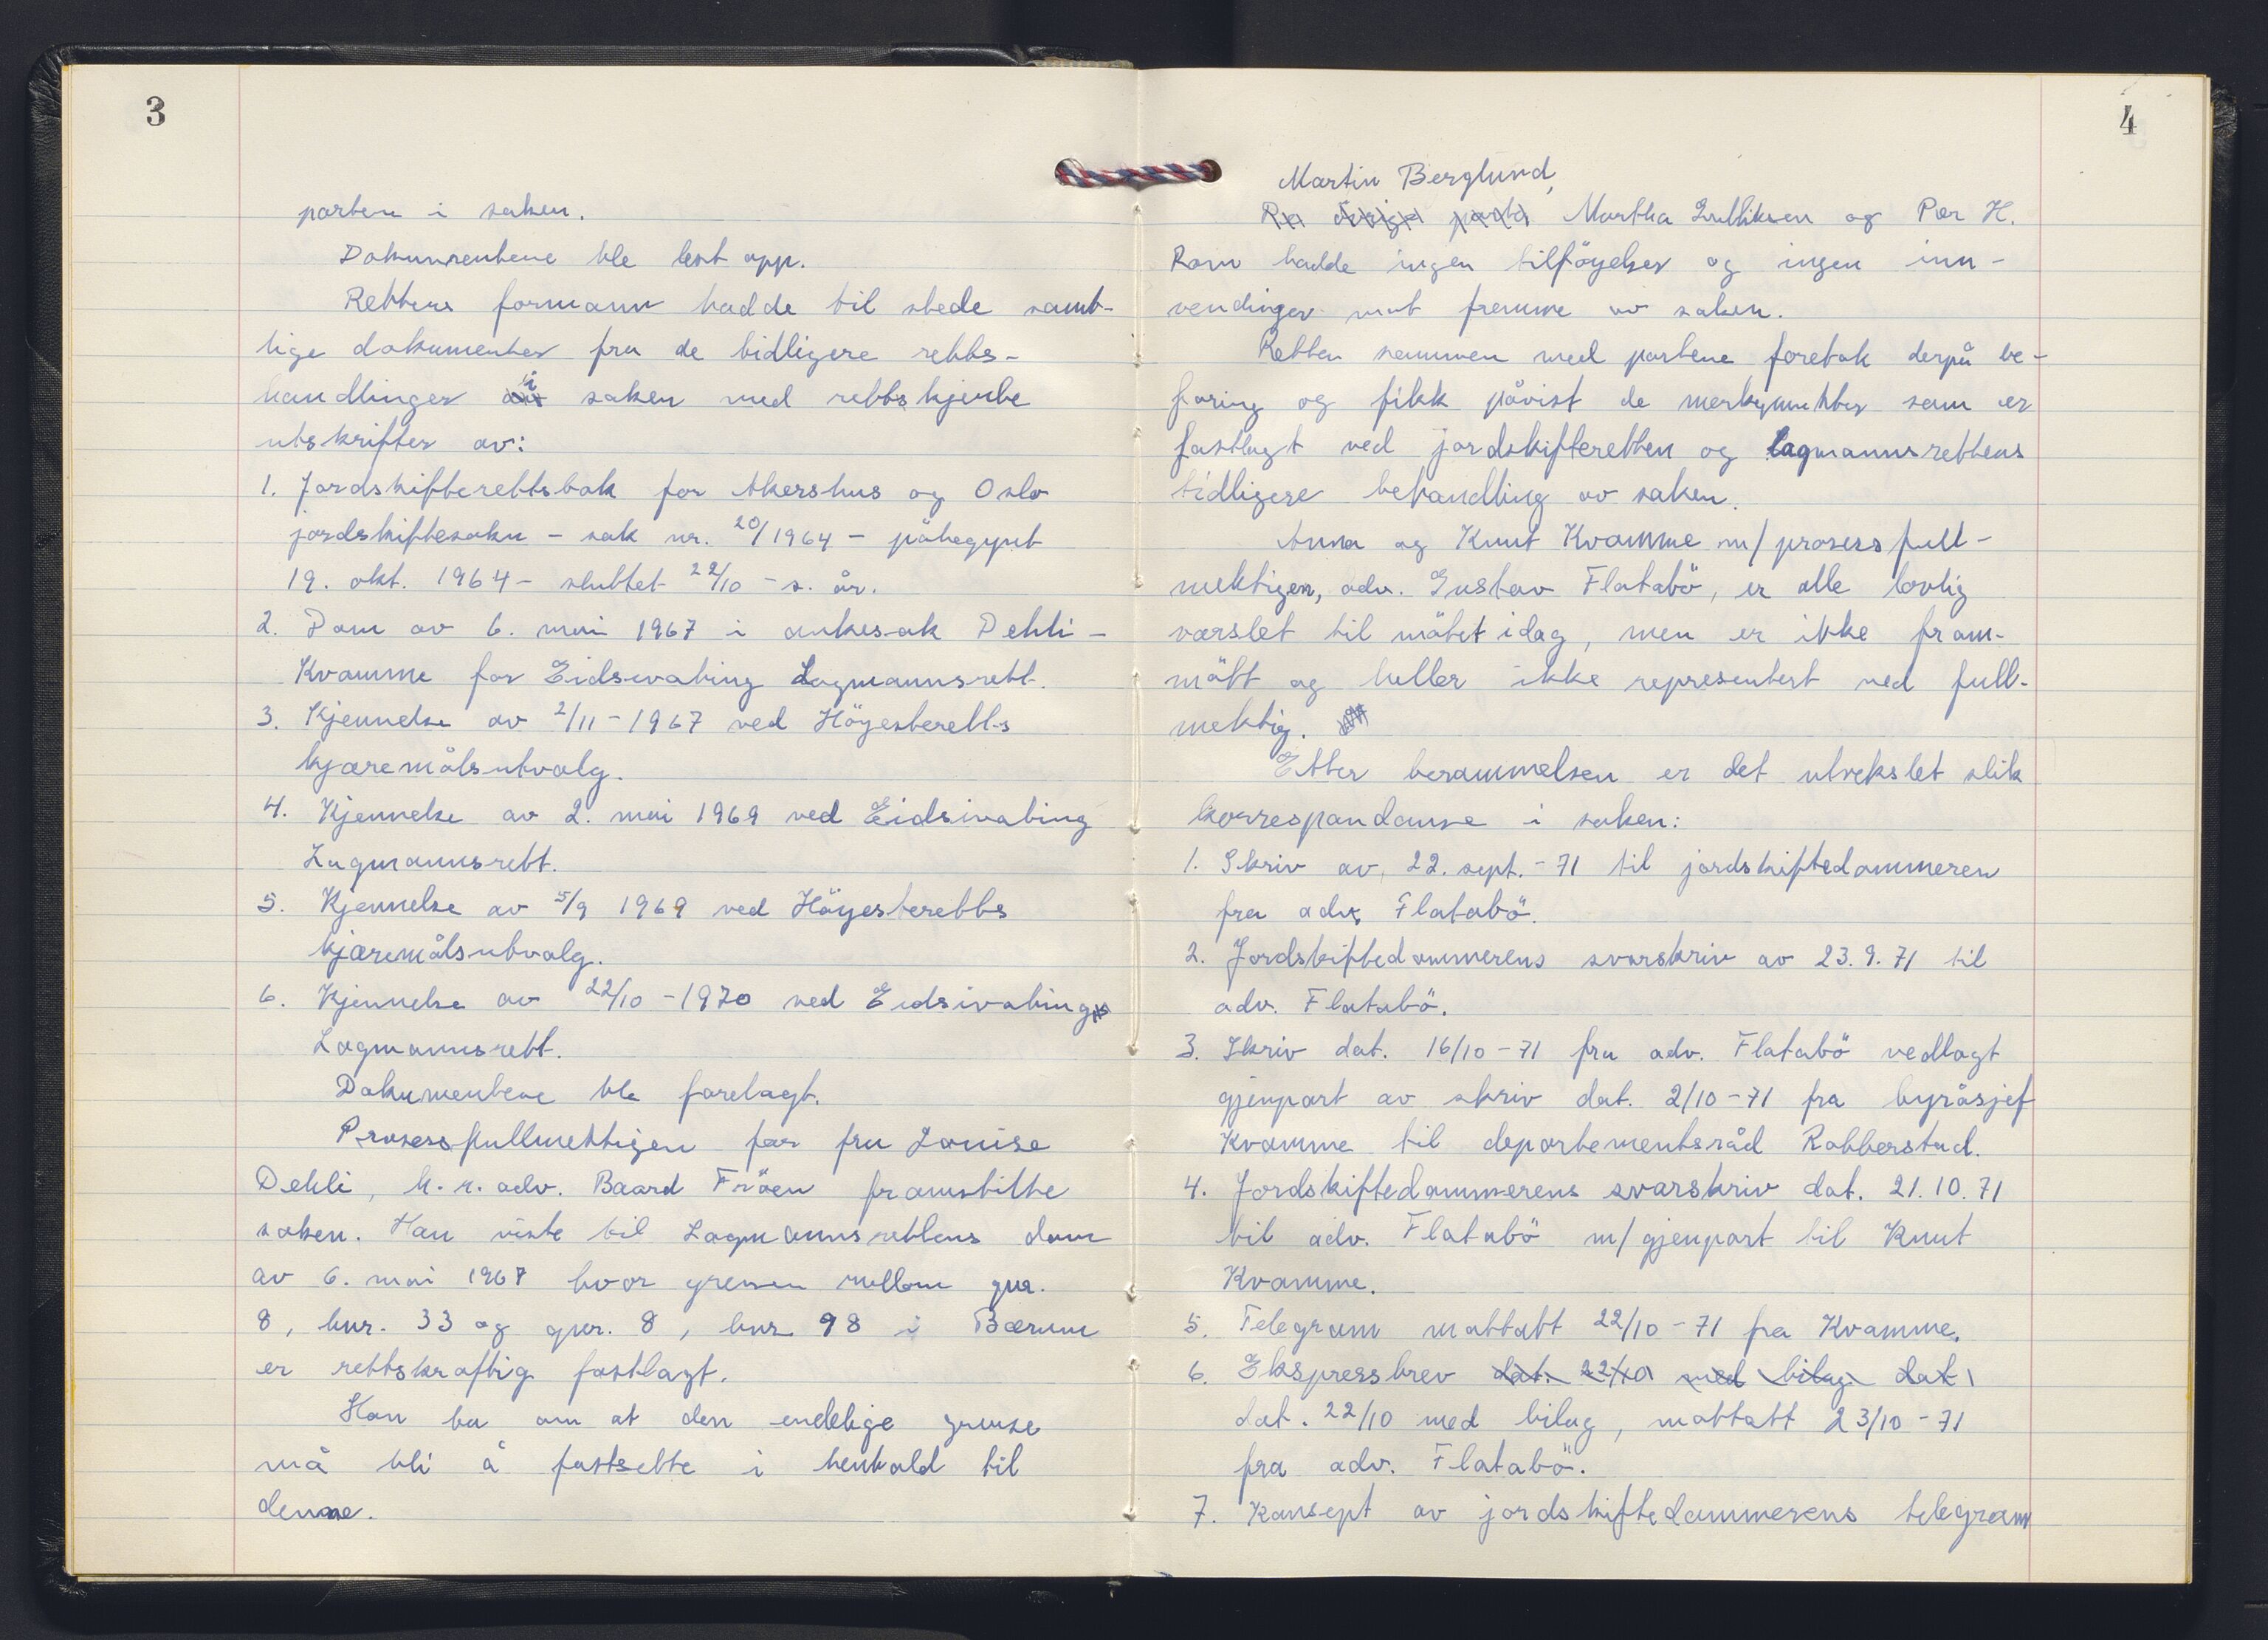 3
parten i saken.
Dokumentene ble lest opp.
Rettens formann hadde til stede samt-
lige dokumenter fra de tidligere retts-
handlinger i saken med rettskjente
utskrifter av:
1. Jordskifterettsbok for Akershus og Oslo
jordskiftesokn - sak nr. 20/1964 - påbegynt
19. okt. 1964 - sluttet 22/10 - s. år.
2. Dom av 6. mai 1967 i ankesak Dehli -
Kvamme for Eidsivating Lagmannsrett.
3. Kjennelse av 2/11 - 1967 ved Höyesteretts
kjæremålsutvalg.
4. Kjennelse av 2. mai 1969 ved Eidsivating
Lagmannsrett.
5. Kjennelse av 5/9 1969 ved Höyesteretts
kjæremålsutvalg.
6. Kjennelse av 22/10 - 1970 ved Eidsivating
Lagmannsrett.
Dokumentene ble forelagt.
Prosessfullmektigen for fru Louise
Dehli, h.r.adv. Baard Fröen framstilte
saken. Han viste til Lagmannsrettens dom
av 6. mai 1967 hvor grensen mellom gnr.
8, bnr. 33 og gnr. 8, bnr 98 i Bærum
er rettskraftig fastlagt.
Han ba om at den endelige grense
må bli å fastsette i henhold til
denne.
4
Martin Berglund,
Rex övrige parter Martha Gulliksen og Per H.
Rom hadde ingen tilföyelser og ingen inn-
vendinger mot fremme av saken.
Retten sammen med partene foretok derpå be-
faring og fikk påvist de merkepunkter som er
fastlagt ved jordskifteretten og lagmannsrettens
tidligere behandling av saken.
Anna og Knut Kvamme m/prosessfull-
mektigen, adv. Gustav Flatabö, er alle lovlig
varslet til mötet idag, men er ikke fram-
mött og heller ikke representert ved full-
mektig.
Etter berammelsen er det utvekslet slik
korrespondanse i saken:
1. Skriv av, 22. sept. - 71 til jordskiftedommeren
fra adv. Flatabö.
2. Jordskiftedommerens svarskriv av 23.9.71 til
adv. Flatabö.
3. Skriv dat. 16/10 - 71 fra adv. Flatabö vedlagt
gjenpart av skriv dat. 2/10 - 71 fra byråsjef
Kvamme til departementsråd Robberstad.
4. Jordskiftedommerens svarskriv dat. 21.10.71
til adv. Flatabö m/gjenpart til Knut
Kvamme.
5. Telegram mottatt 22/10 - 71 fra Kvamme.
6. Ekspressbrev dat. 22/10 med bilag dat
dat. 22/10 med bilag, mottatt 23/10 - 71
fra adv. Flatabö.
7. Konsept av jordskiftedommerens telegram